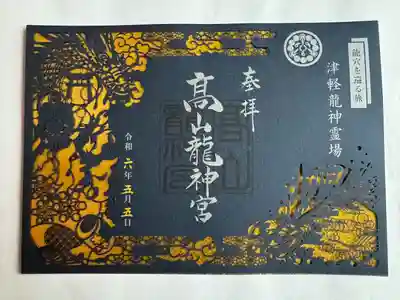 龍穴を巡る旅
津軽龍神霊場
奉拝
髙山龍神宮
令和六年五月五日